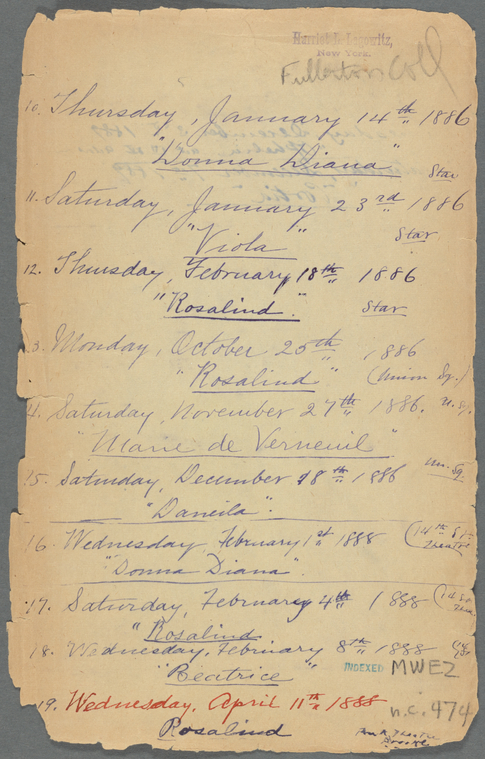 New York.
Fullerton Coll
10. Thursday, January 14th 1886
"Donna Diana"
Star
11. Saturday, January 23rd 1886
"Viola"
Star
12. Thursday, February 18th 1886
"Rosalind".
Star
13. Monday, October 25th 1886
"Rosalind"
(Union Sq.)
14. Saturday, November 27th 1886. U. Sq.
"Marie de Verneuil"
15. Saturday, December 18th 1886
Un. Sq
"Daneila".
16. Wednesday, February 1st 1888
(14th St.
Theatre
"Donna Diana".
17. Saturday, February 4th 1888
(14 St.
"Rosalind
18. Wednesday, February 8th 1888
"Beatrice"
INDEXED MWEZ
19. Wednesday, April 11th 1888
n.c. 474
Rosalind
Park Theatre